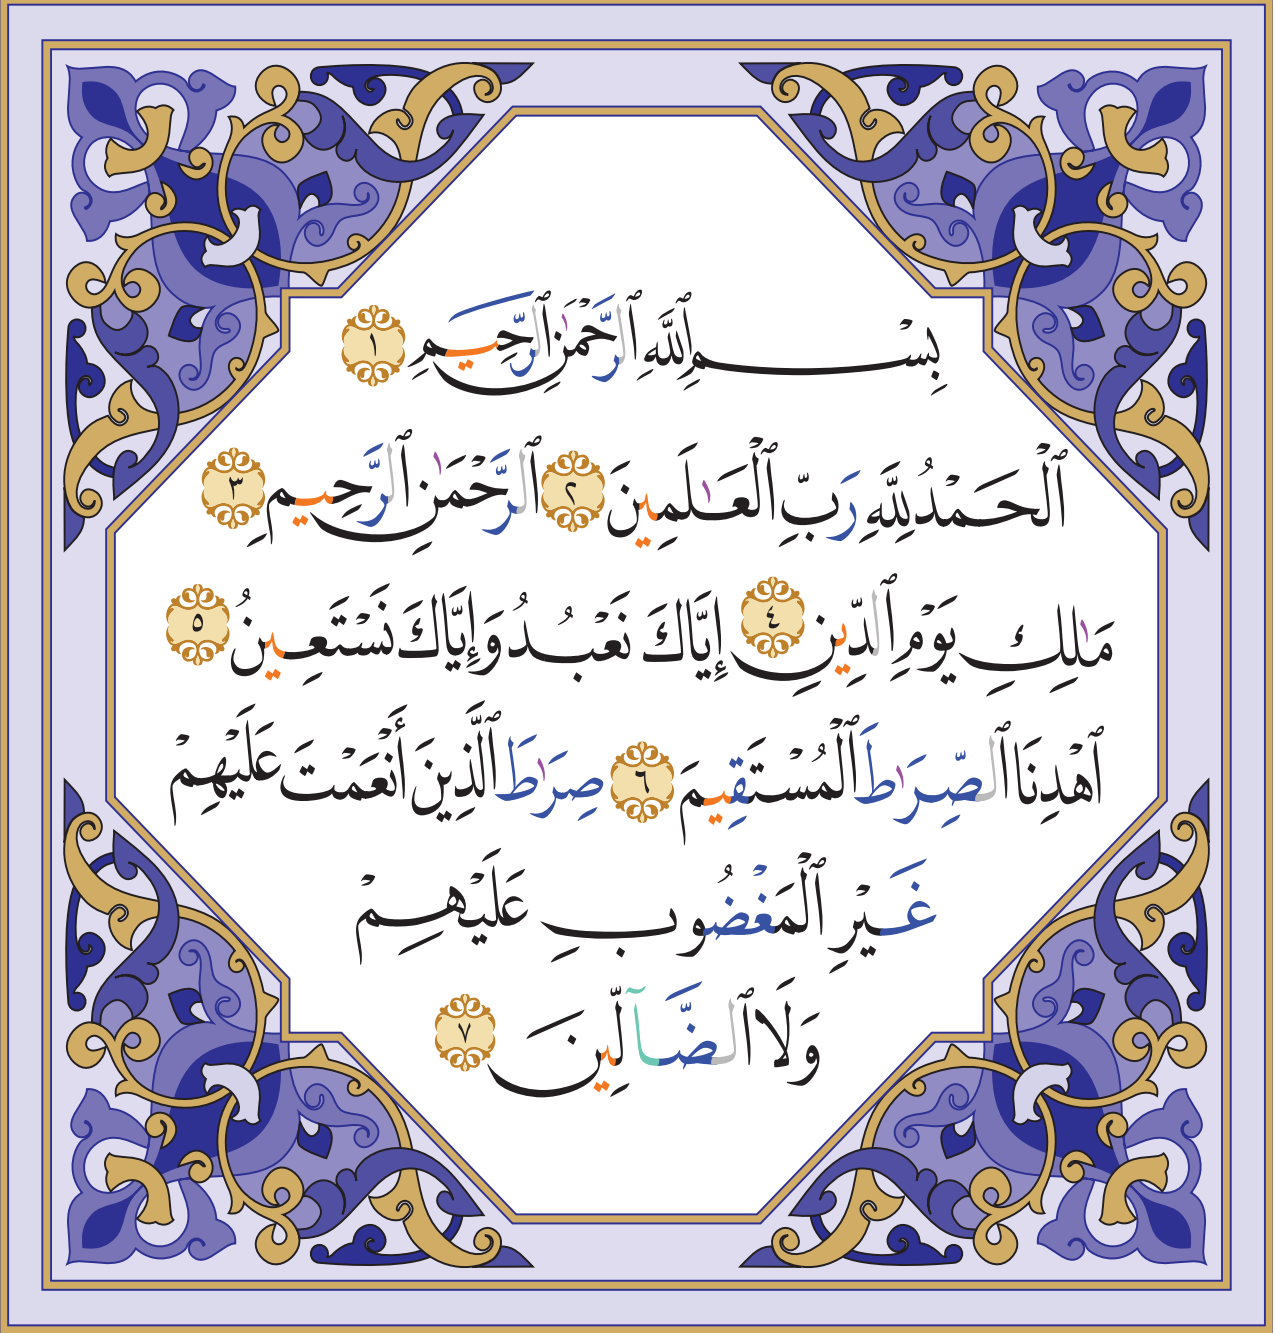 بِسْمِ ٱللَّهِ ٱلرَّحْمَٰنِ ٱلرَّحِيمِ ١
ٱلْحَمْدُ لِلَّهِ رَبِّ ٱلْعَٰلَمِينَ ٢ ٱلرَّحْمَٰنِ ٱلرَّحِيمِ ٣
مَٰلِكِ يَوْمِ ٱلدِّينِ ٤ إِيَّاكَ نَعْبُدُ وَإِيَّاكَ نَسْتَعِينُ ٥
ٱهْدِنَا ٱلصِّرَٰطَ ٱلْمُسْتَقِيمَ ٦ صِرَٰطَ ٱلَّذِينَ أَنْعَمْتَ عَلَيْهِمْ
غَيْرِ ٱلْمَغْضُوبِ عَلَيْهِمْ
وَلَا ٱلضَّآلِّينَ ٧